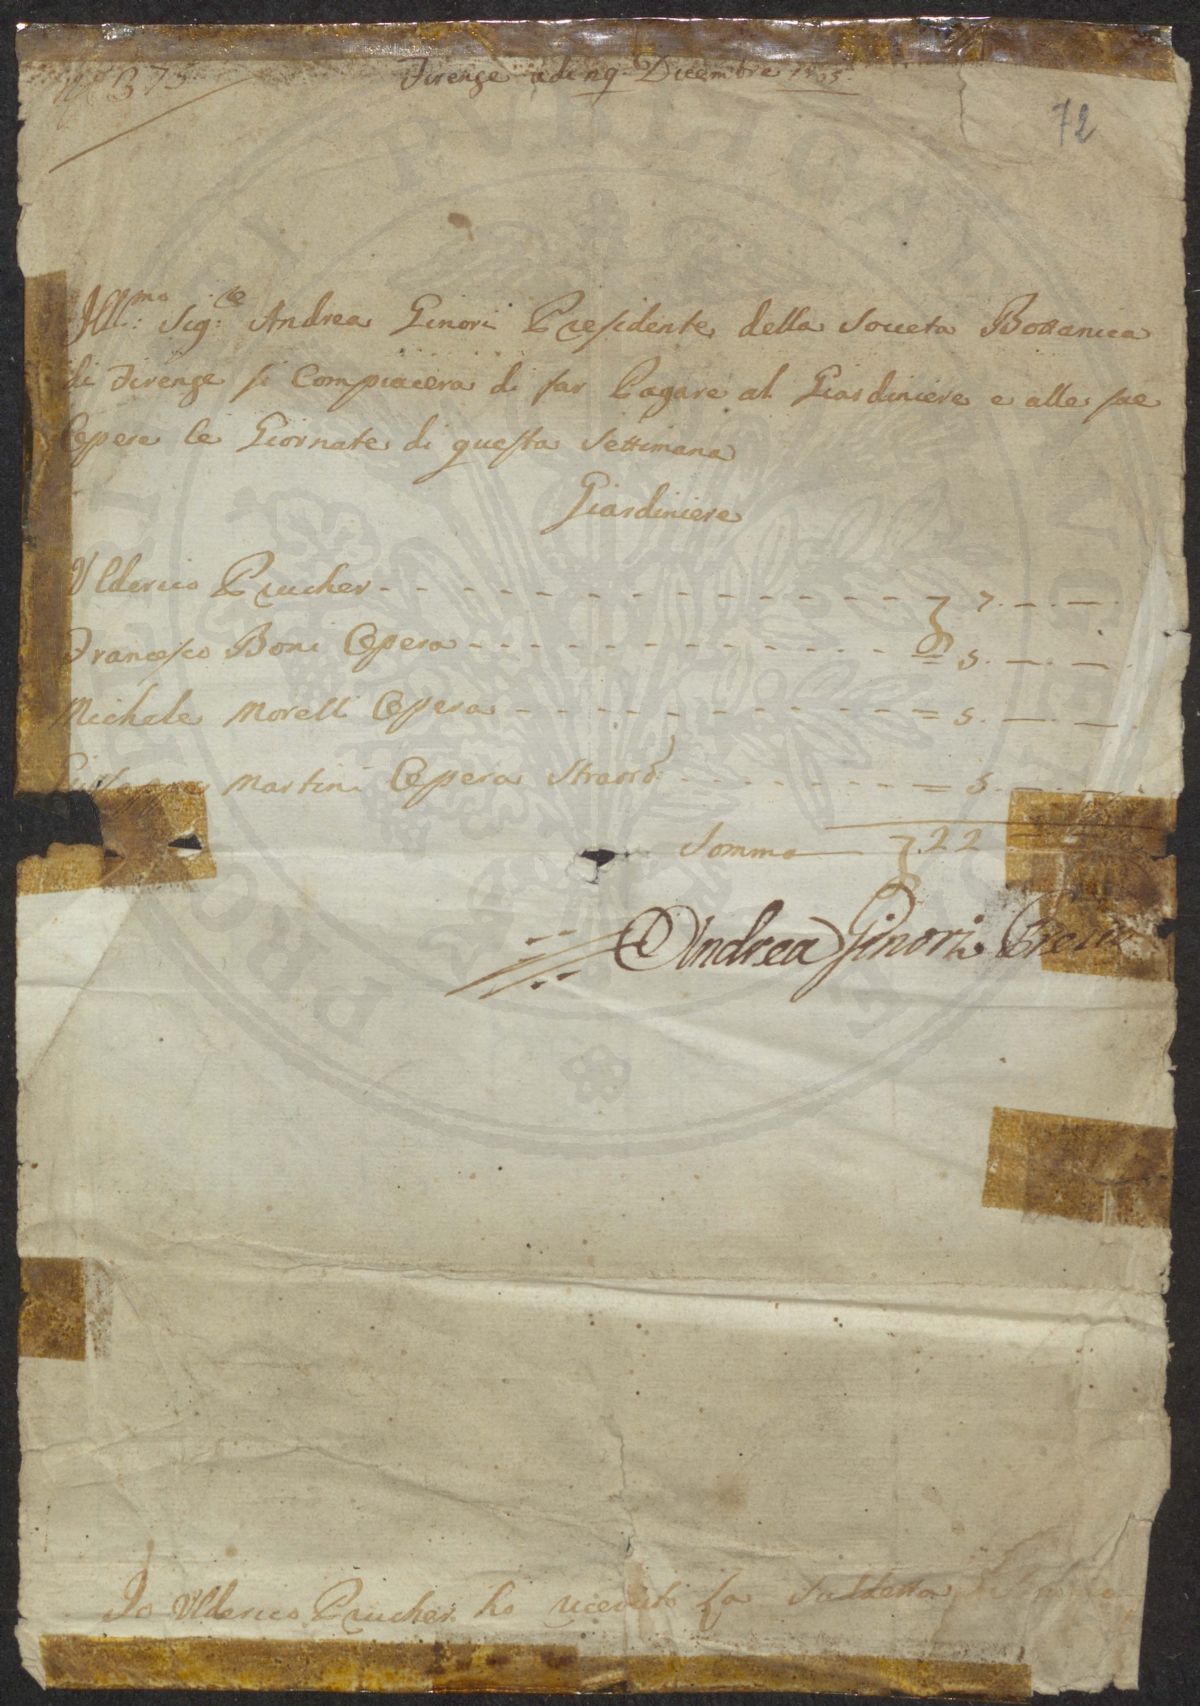 N.° 373
Firenze adi 19 Dicembre
72
Ill:mo Sig:re Cte Andrea Ginori Presidente della Società Bottanica
di Firenze si Compiacera di far Pagare al Giardiniere e alle sue
Opere le Giornate di questa Settimana
Giardiniere
Ulderico Prucher - - - - - - - - - - - - - - - - 7. — . — .
Francesco Boni Opera - - - - - - - - - - - - = 5. — . — .
Michele Morelli Opera - - - - - - - - - - - = 5. — . — .
Martini Opera Straord: - - - - - - - = 5. — . — .
Somma — 22
Andrea Ginori
Io Ulderico Prucher ho ricevuto la Suddetta